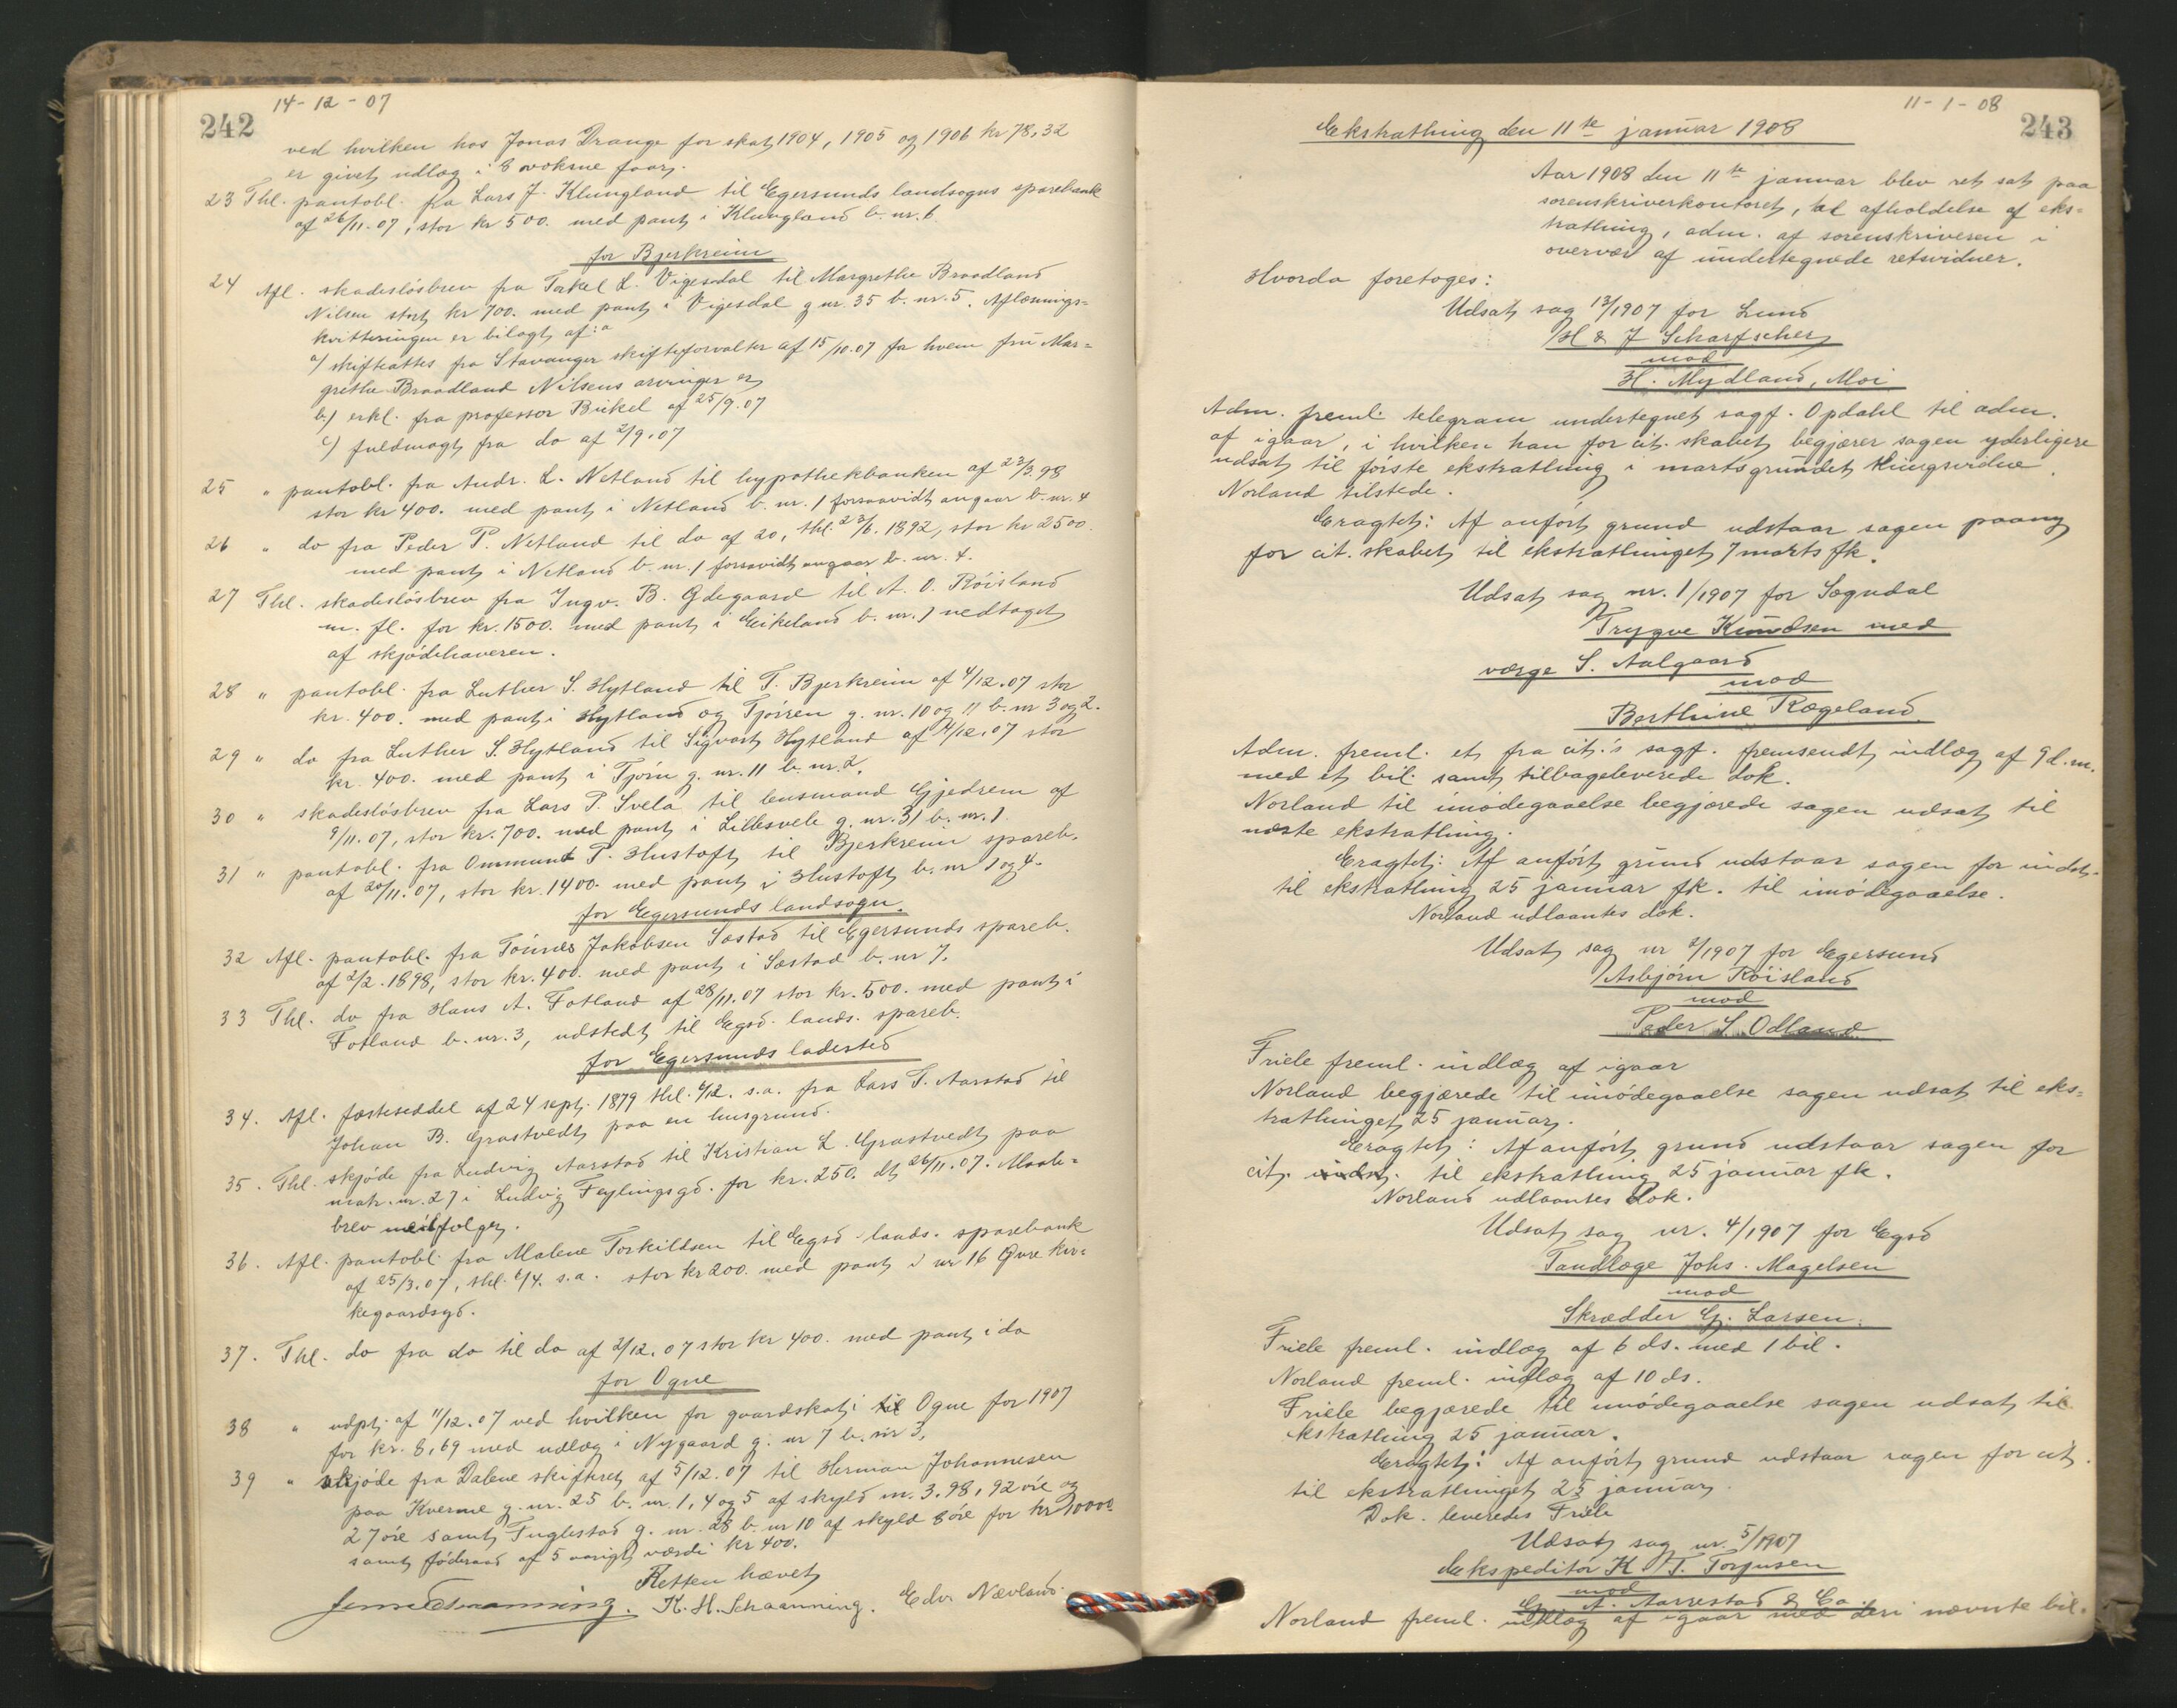 242
14-12-07
ved hvilken hos Jonas Drange for skat 1904, 1905 og 1906 kr 78,32
er givet udlæg i 8 voksne faar.
23 Thl. pantobl. fra Lars J. Klungland til Egersunds landsogns sparebank
af 26/11.07, stor kr 500. med pant i Klungland b. nr. 6.
for Bjerkreim
24 Afl. skadesløsbrev fra Torkel L. Vigesdal til Margrethe Braadland
Nilsen stort kr 700. med pant i Vigesdal g nr. 35 b. nr. 5. Aflæsnings=
kvitteringen er bilagt af:
a) skifteattes fra Stavanger skifteforvalter af 15/10.07 for hvem fru Mar=
grethe Braadland Nilsens arvinger er
b) erkl. fra professor Bickel af 25/9.07
c) fuldmagt fra do af 2/9.07
25 " pantobl. fra Andr. L. Netland til hypothekbanken af 23/3.98
stor kr 400. med pant i Netland b. nr. 1 forsaavidt angaar b. nr. 4
26 " do fra Peder P. Netland til do af 20, thl. 23/6. 1892, stor kr 2500.
med pant i Netland b. nr. 1 forsavidt angaar b. nr. 4.
27 Thl. skadesløsbrev fra Ingv. B. Ødegaard til A. O. Røisland
m. fl. for kr. 1500. med pant i Eikeland b. nr. 1 vedtaget
af skjødehaveren.
28 " pantobl. fra Luther S. Hytland til T. Bjerkreim af 4/12.07 stor
kr. 400. med pant i Hytland og Tjørn g. nr. 10 og 11 b. nr 3 og 2.
29 " do fra Luther S. Hytland til Sigvart Hytland af 4/12.07 stor
kr. 400. med pant i Tjørn g. nr. 11 b. nr. 2.
30 " skadesløsbrev fra Lars P. Svela til lensmand Gjedrem af
9/11.07, stor kr. 700. med pant i Lillesvele g. nr. 31 b. nr. 1.
31 " pantobl. fra Ommund T. Hustoft til Bjerkreim spareb.
af 20/11.07, stor kr. 1400. med pant i Hustoft b. nr 1 og 4.
for Egersunds landsogn.
32 Afl. pantobl. fra Tønnes Jakobsen Sæstad til Egersunds spareb.
af 2/2. 1898, stor kr. 400. med pant i Sæstad b. nr 7.
33 Thl. do fra Hans A. Fotland af 28/11.07 stor kr. 500. med pant i
Fotland b. nr. 3, udstedt til Egsd. lands. spareb.
for Egersunds ladested
34. Afl. fæsteseddel af 24 sept. 1879 thl. 6/12. s.a. fra Lars T. Aarstad til
Johan B. Grastvedt paa en husgrund.
35. Thl. skjøde fra Ludvig Aarstad til Kristian L. Grastvedt paa
matr. nr. 27 i Ludvig Feylingsgd. for kr. 250. dt 26/11.07. Maale=
brev medfølger.
36. Afl. pantobl. fra Malene Torkildsen til Egsd. lands. sparebank
af 25/3.07, thl. 6/4. s.a. stor kr 200. med pant i nr 16 Øvre kir=
kegaardsgd.
37. Thl. do fra do til do af 2/12.07 stor kr 400. med pant i do
for Ogne
38 " udpt. af 11/12.07 ved hvilken for gaardskat i til Ogne for 1907
for kr. 8,69 med udlæg i Nygaard g. nr 7 b. nr 3,
39 " skjøde fra Dalene skifteret af 5/12.07 til Herman Johannesen
paa Kverme g. nr. 25 b. nr. 1, 4 og 5 af skyld m. 3.98, 92 øre og
27 øre samt Fuglestad g. nr. 28 b. nr 10 af skyld 8 øre for kr 10000.
samt føderaad af 5 aarigt værdi kr 400.
Retten hævet
K. H. Schaanning. Edv. Nævland.
11-1-08
243
Ekstrathing den 11te januar 1908
Aar 1908 den 11te januar blev ret sat paa
sorenskriverkontoret, til afholdelse af eks=
trathing, adm. af sorenskriveren i
overvær af undertegnede retsvidner.
Hvorda foretoges:
Udsat sag 13/1907 for Lund
H & J Scharfscher
mod
H. Mydland, Moi
Adm. freml. telegram undertegnet sagf. Opdahl til adm.
af igaar, i hvilken han for cit. skabet begjærer sagen yderligere
udsat til første ekstrathing i marts grundet thingsvidne.
Norland tilstede.
Eragtet: Af anført grund udstaar sagen paany
for cit. skabet til ekstrathinget 7 marts fk.
Udsat sag nr. 1/1907 for Sogndal
Trygve Knudsen med
værge S. Aalgaard
mod
Berthine Rægeland.
Adm. freml. et fra cit.'s sagf. fremsendt indlæg af 9 d.m.
med et bil. samt tilbageleverede dok.
Norland til imødegaaelse begjærede sagen udsat til
næste ekstrathing.
Eragtet: Af anført grund udstaar sagen for indst.
til ekstrathing 25 januar fk. til imødegaaelse.
Norland udlaantes dok.
Udsat sag nr 2/1907 for Egersund
Asbjørn Røisland
mod
Peder S. Odland
Friele freml. indlæg af igaar
Norland begjærede til imødegaaelse sagen udsat til eks=
trathinget 25 januar.
Eragtet: Af anført grund udstaar sagen for
cit. indst. til ekstrathing 25 januar fk.
Norland udlaantes dok.
Udsat sag nr. 4/1907 for Egsd
Tandlæge Johs. Magelsen
mod
Skrædder G. Larsen.
Friele freml. indlæg af 6 ds. med 1 bil.
Norland freml. indlæg af 10 ds.
Friele begjærede til imødegaaelse sagen udsat til
ekstrathing 25 januar.
Eragtet: Af anført grund udstaar sagen for cit.
til ekstrathinget 25 januar.
Dok. leveredes Friele
Udsat sag nr. 5/1907
Ekspeditør K T. Torjusen
mod
A. Aarrestad & Co
Norland freml. indlæg af igaar med deri nævnte bil.